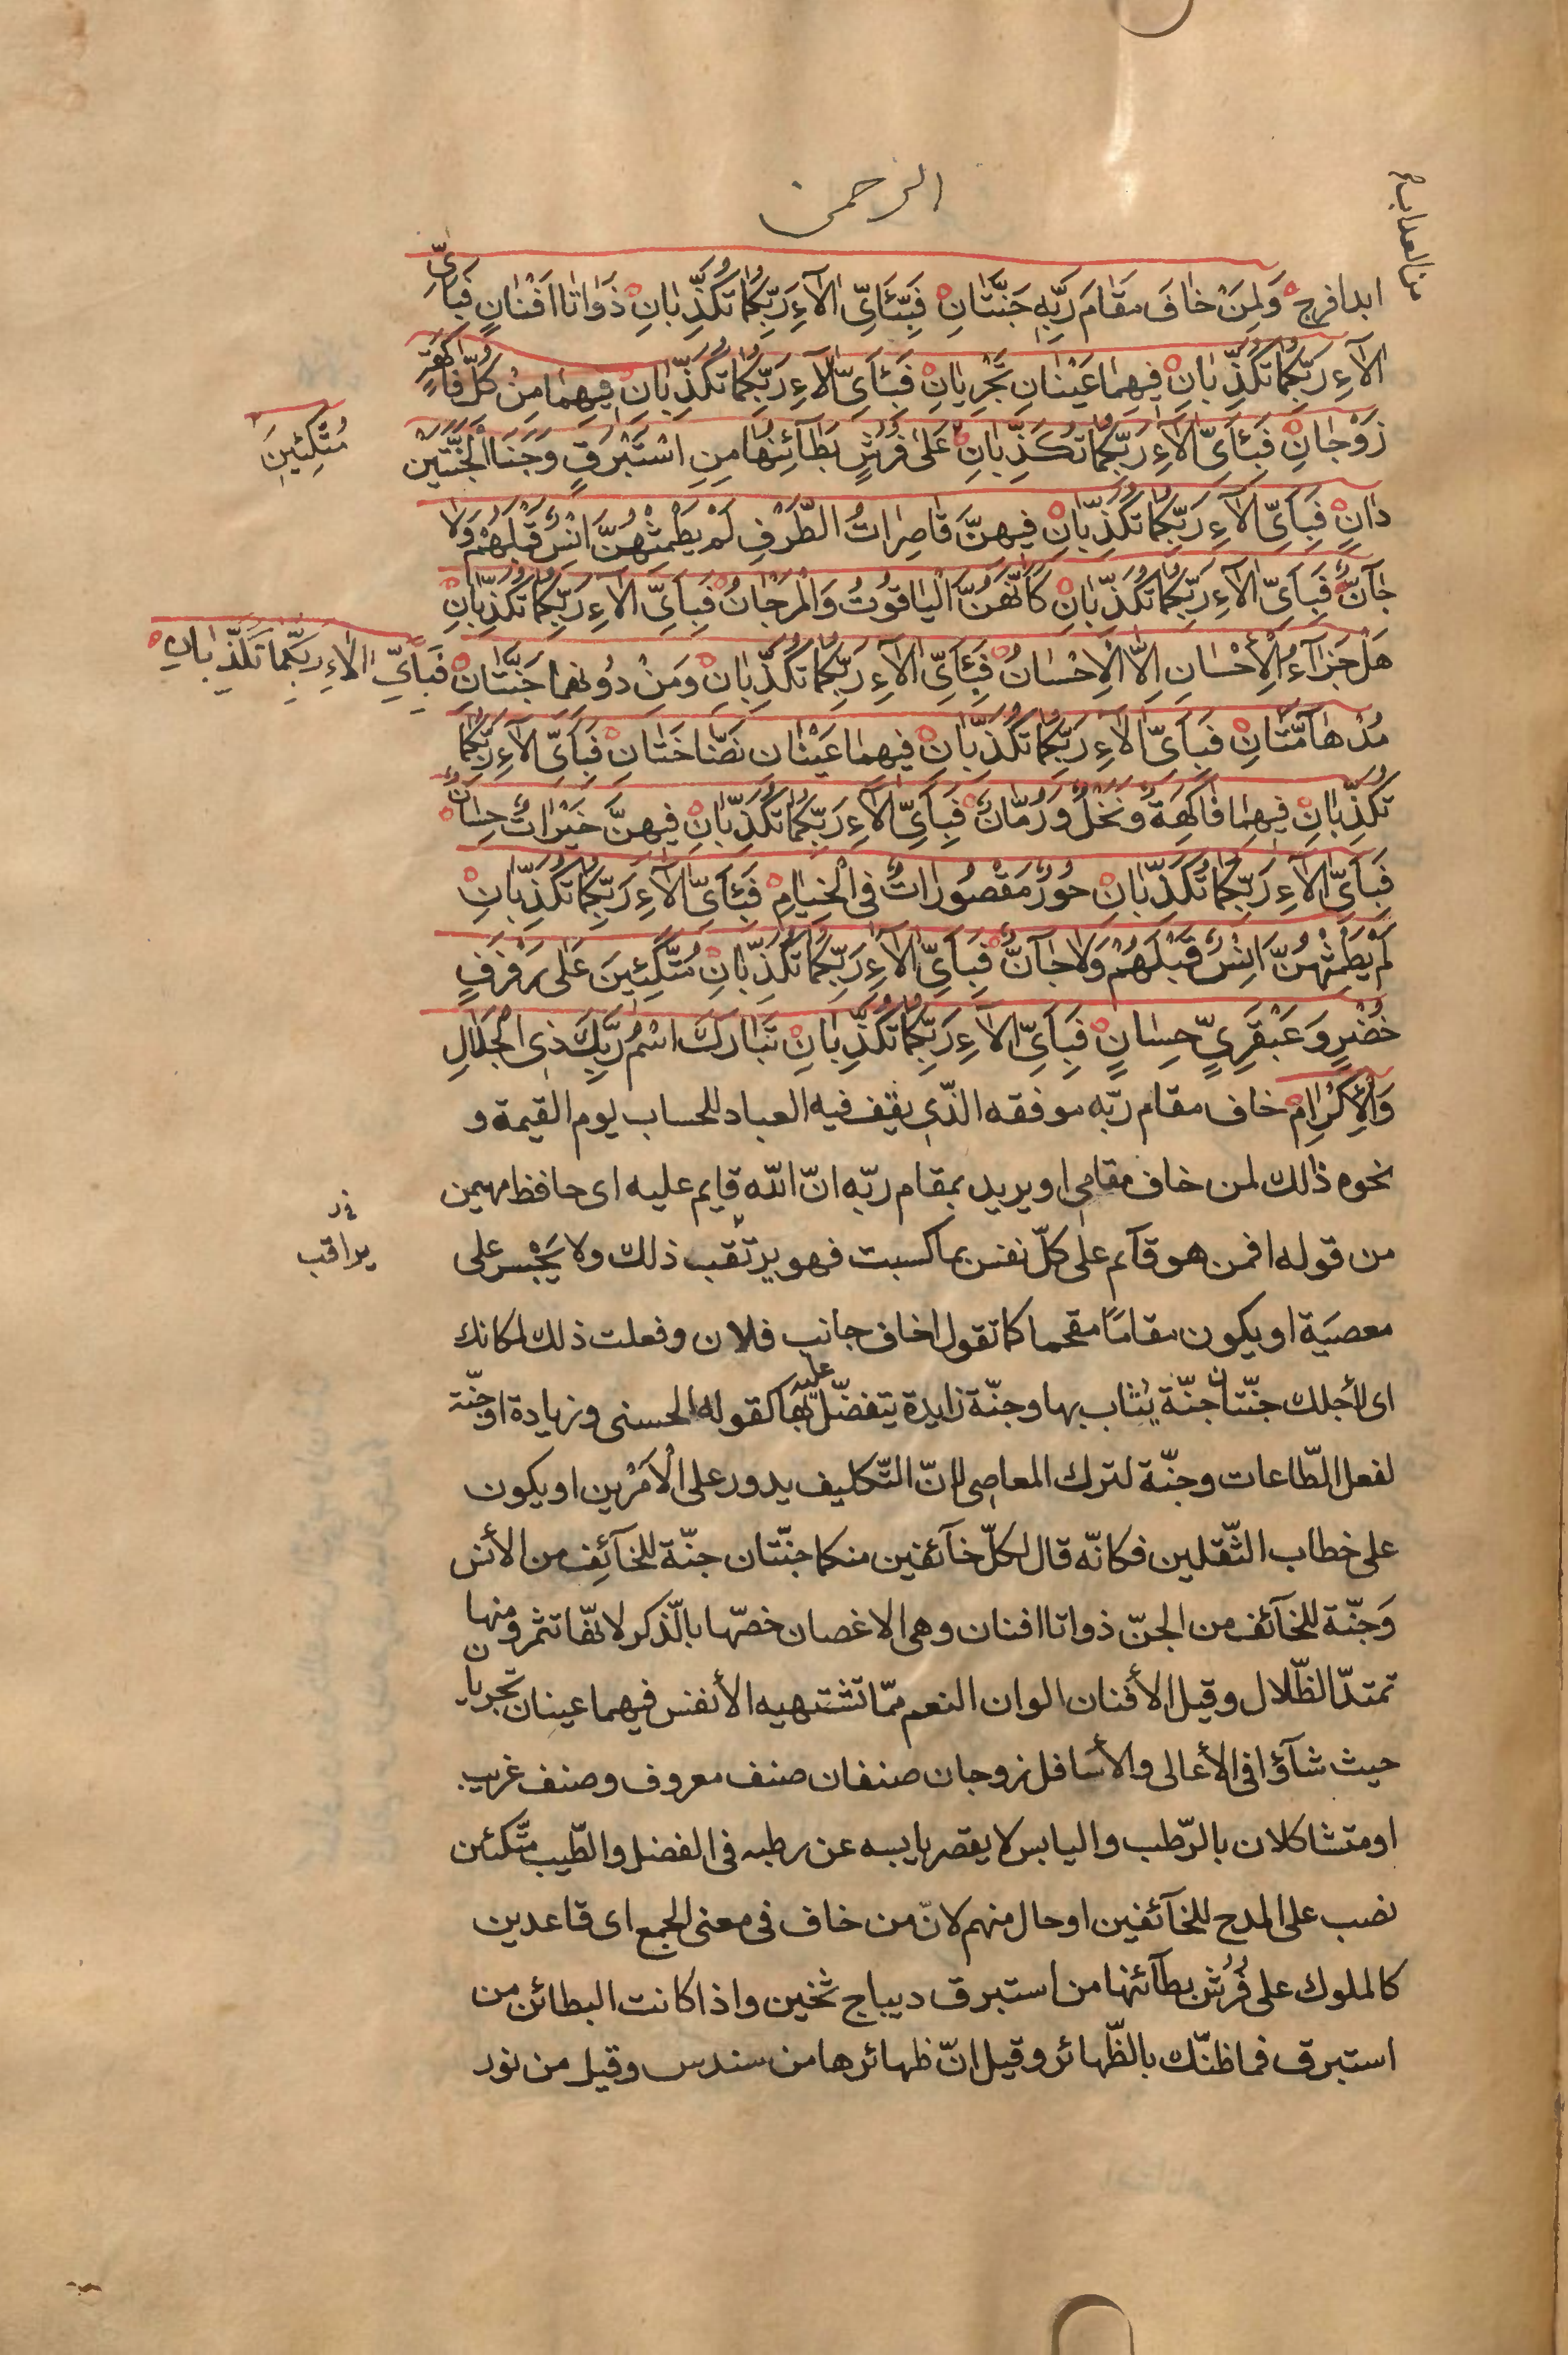 الرحمن
من العذاب
ابدا فرج وَلِمَنْ خَافَ مَقَامَ رَبِّهِ جَنَّتَانِ فَبِئَايِّ الآءِ رَبِّكُمَا تُكَذِّبَانِ ذَوَاتَا افْنَانٍ فَبِاَىِّ
الآءِ رَبِّكُمَا تُكَذِّبَانِ فِيهِمَا عَيْنَانِ تَجْرِيَانِ فَبِئَاىِّ الآءِ رَبِّكُمَا تُكَذِّبَانِ فِيهِمَا مِنْ كُلِّ فَاكِهَةٍ
زَوْجَانِ فَبِئَاىِّ الآءِ رَبِّكُمَا تُكَذِّبَانِ عَلَى فُرُشٍ بَطَآئِنُهَا مِنِ اسْتَبْرَقٍ وَجَنَا الْجَنَّتَيْنِ
مُتَّكِئِينَ
دَانٍ فَبِاَىِّ الآءِ رَبِّكُمَا تُكَذِّبَانِ فِيهِنَّ قَاصِرَاتُ الطَّرْفِ لَمْ يَطْمِثْهُنَّ اِنْسٌ قَبْلَهُمْ وَلَا
جَآنٌّ فَبِاَىِّ الآءِ رَبِّكُمَا تُكَذِّبَانِ كَاَنَّهُنَّ الْيَاقُوتُ وَالْمَرْجَانُ فَبِاَىِّ الآءِ رَبِّكُمَا تُكَذِّبَانِ
هَلْ جَزَآءُ الْاِحْسَانِ اِلَّا الْاِحْسَانُ فَبِئَاىِّ الآءِ رَبِّكُمَا تُكَذِّبَانِ وَمِنْ دُونِهِمَا جَنَّتَانِ فَبِاَىِّ الآءِ رَبِّكُمَا تُكَذِّبَانِ
مُدْهَآمَّتَانِ فَبِاَىِّ الآءِ رَبِّكُمَا تُكَذِّبَانِ فِيهِمَا عَيْنَانِ نَضَّاخَتَانِ فَبِاَىِّ الآءِ رَبِّكُمَا
تُكَذِّبَانِ فِيهِمَا فَاكِهَةٌ وَنَخْلٌ وَرُمَّانٌ فَبِاَىِّ الآءِ رَبِّكُمَا تُكَذِّبَانِ فِيهِنَّ خَيْرَاتٌ حِسَانٌ
فَبِاَىِّ الآءِ رَبِّكُمَا تُكَذِّبَانِ حُورٌ مَقْصُورَاتٌ فِى الْخِيَامِ فَبِئَاىِّ الآءِ رَبِّكُمَا تُكَذِّبَانِ
لَمْ يَطْمِثْهُنَّ اِنْسٌ قَبْلَهُمْ وَلَا جَآنٌّ فَبِاَىِّ الآءِ رَبِّكُمَا تُكَذِّبَانِ مُتَّكِئِينَ عَلَى رَفْرَفٍ
خُضْرٍ وَعَبْقَرِيٍّ حِسَانٍ فَبِاَىِّ الآءِ رَبِّكُمَا تُكَذِّبَانِ تَبَارَكَ اسْمُ رَبِّكَ ذِى الْجَلَالِ
وَالْاِكْرَامِ خاف مقام ربّه موفقه الذّى يقف فيه العباد للحساب يوم القيمة و
نحوه ذالك لمن خاف مقامى او يريد بمقام ربّه انّ الله قايم عليه اى حافظ مهيمن
من قوله افمن هو قآيم على كلّ نفس بما كسبت فهو يرتقب ذلك ولا يَجْسر على
يراقب
معصيَة او يكون مقامًا مقحما كما تقول اخاف جانب فلان وفعلت ذلك لمكانك
اى لأجلك جنّتان جنّة يثاب بها وجنّة زايدة يتفضّل بها عليه كقوله الحسنى وزيادة او جنّة
لفعل الطّاعات وجنّة لترك المعاصى لانّ التّكليف يدور على الْاَمْرَين او يكون
على خطاب الثّقلين فكانّه قال لكلّ خآئفين منكما جنّتان جنّة للخآئف من الأنس
وَجنّة للخآئف من الجنّ ذواتا افنان وهى الاغصان خصّها بالّذكر لانّها تثمر ومنها
تمتدّ الظّلال وقيل الأفنان الوان النعم ممّا تشتهيه الأنفس فيهما عينان تجريان
حيث شآؤا فى الأعالى والأسافل زوجان صنفان صنف معروف وصنف غريب
او متشاكلان بالرّطب واليابس لا يقصر يابسه عن رطبه فى الفضل والطّيب متّكئن
نصب على المدح للخآئفين او حال منهم لانّ من خاف فى معنى الجمع اى قاعدين
كالملوك على فُرُش بطآئنها من استبرق ديباج ثخين واذا كانت البطائن من
استبرق فما ظنّك بالظّهائر وقيل انّ ظهائرها من سندس وقيل من نور